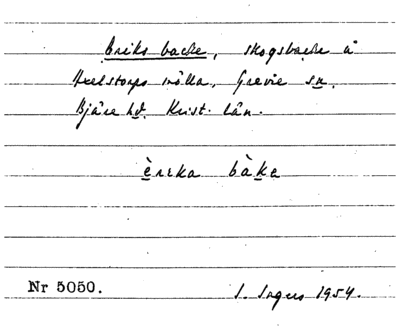 Eriks backe, skogsbacke å
Axelstorps mölla, Grevie sn.
Bjäre hd. Krist. län.
èrrka bàke
Nr 5050.
I. Ingers 1954.